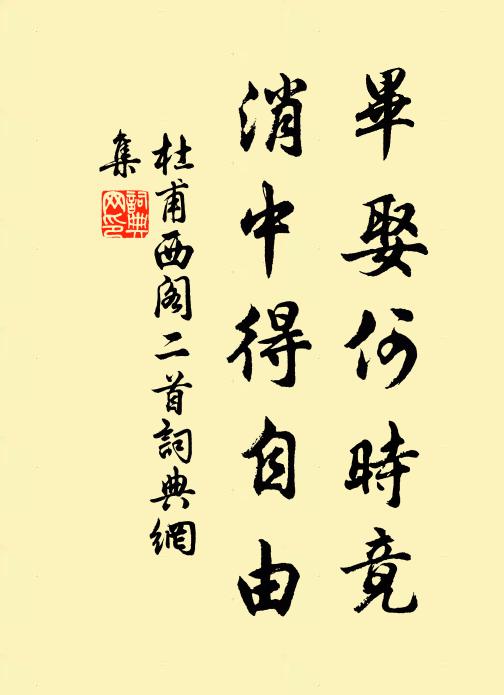 畢娶何時竟
消中得自由
杜甫西阁二首詞典網
集
詞典
网印